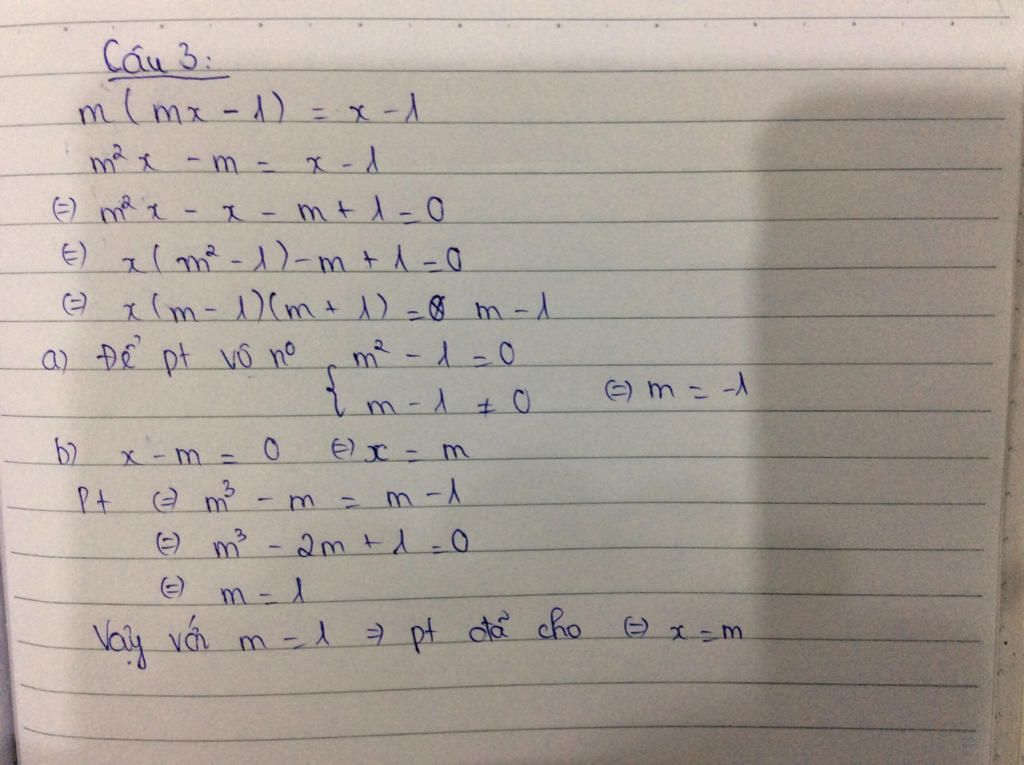 Câu 3:
m(mx - 1) = x - 1
m²x - m = x - 1
(=) m²x - x - m + 1 = 0
(=) x(m² - 1) - m + 1 = 0
(=) x(m - 1)(m + 1) = m - 1
a) Để pt vô n⁰ { m² - 1 = 0
m - 1 ≠ 0 (=) m = -1
b) x - m = 0 (=) x = m
Pt (=) m³ - m = m - 1
(=) m³ - 2m + 1 = 0
(=) m = 1
Vậy với m = 1 => pt đã cho (=) x = m